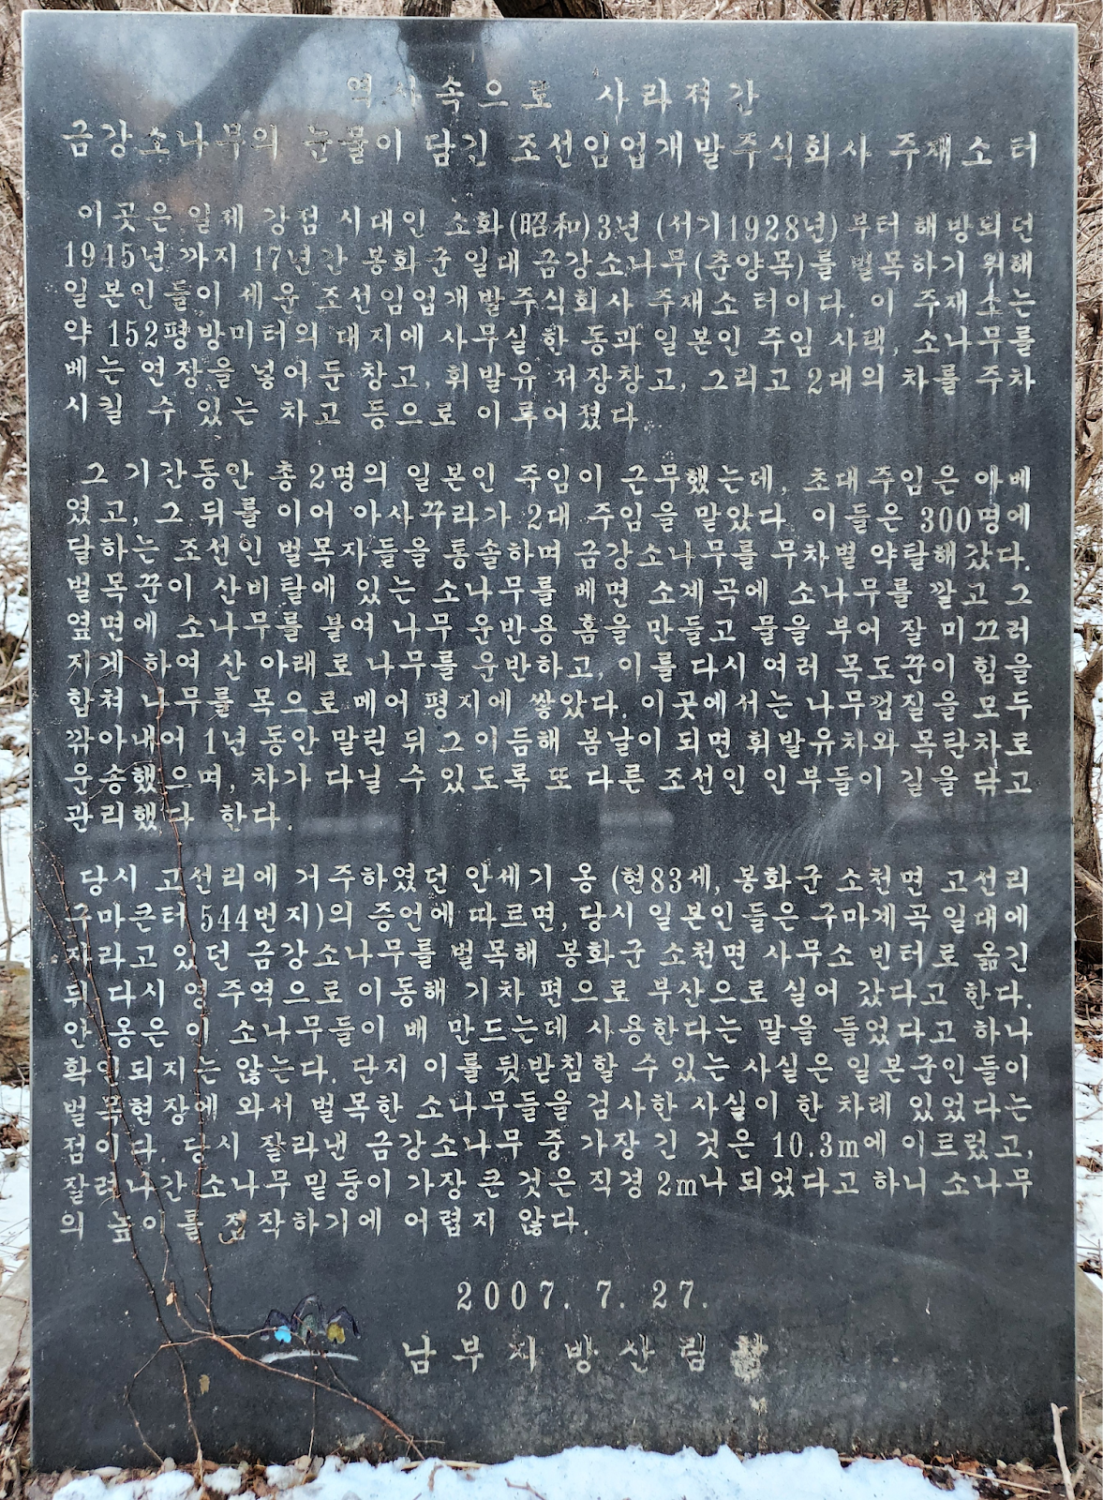 역사속으로 사라져간
금강소나무의 눈물이 담긴 조선임업개발주식회사 주재소 터
이곳은 일제 강점 시대인 소화(昭和)3년 (서기1928년) 부터 해방되던
1945년 까지 17년간 봉화군 일대 금강소나무(춘양목)를 벌목하기 위해
일본인들이 세운 조선임업개발주식회사 주재소 터이다. 이 주재소는
약 152평방미터의 대지에 사무실 한 동과 일본인 주임 사택, 소나무를
베는 연장을 넣어 둔 창고, 휘발유 저장창고, 그리고 2대의 차를 주차
시킬 수 있는 차고 등으로 이루어졌다.
그 기간동안 총 2명의 일본인 주임이 근무했는데, 초대 주임은 아베
였고, 그 뒤를 이어 아사꾸라가 2대 주임을 맡았다. 이들은 300명에
달하는 조선인 벌목자들을 통솔하며 금강소나무를 무차별 약탈해 갔다.
벌목꾼이 산비탈에 있는 소나무를 베면 소계곡에 소나무를 깔고 그
옆면에 소나무를 붙여 나무 운반용 홈을 만들고 물을 부어 잘 미끄러
지게 하여 산 아래로 나무를 운반하고, 이를 다시 여러 목도꾼이 힘을
합쳐 나무를 목으로 메어 평지에 쌓았다. 이곳에서는 나무껍질을 모두
깎아내어 1년 동안 말린 뒤 그 이듬해 봄날이 되면 휘발유차와 목탄차로
운송했으며, 차가 다닐 수 있도록 또 다른 조선인 인부들이 길을 닦고
관리했다 한다.
당시 고선리에 거주하였던 안세기 옹 (현83세, 봉화군 소천면 고선리
구마큰터 544번지)의 증언에 따르면, 당시 일본인들은 구마계곡 일대에
자라고 있던 금강소나무를 벌목해 봉화군 소천면 사무소 빈터로 옮긴
뒤 다시 영주역으로 이동해 기차 편으로 부산으로 실어 갔다고 한다.
안 옹은 이 소나무들이 배 만드는데 사용한다는 말을 들었다고 하나
확인되지는 않는다. 단지 이를 뒷받침할 수 있는 사실은 일본군인들이
벌목현장에 와서 벌목한 소나무들을 검사한 사실이 한 차례 있었다는
점이다. 당시 잘라낸 금강소나무 중 가장 긴 것은 10.3m에 이르렀고,
잘려나간 소나무 밑둥이 가장 큰 것은 직경 2m나 되었다고 하니 소나무
의 높이를 짐작하기에 어렵지 않다.
2007. 7. 27.
남부지방산림